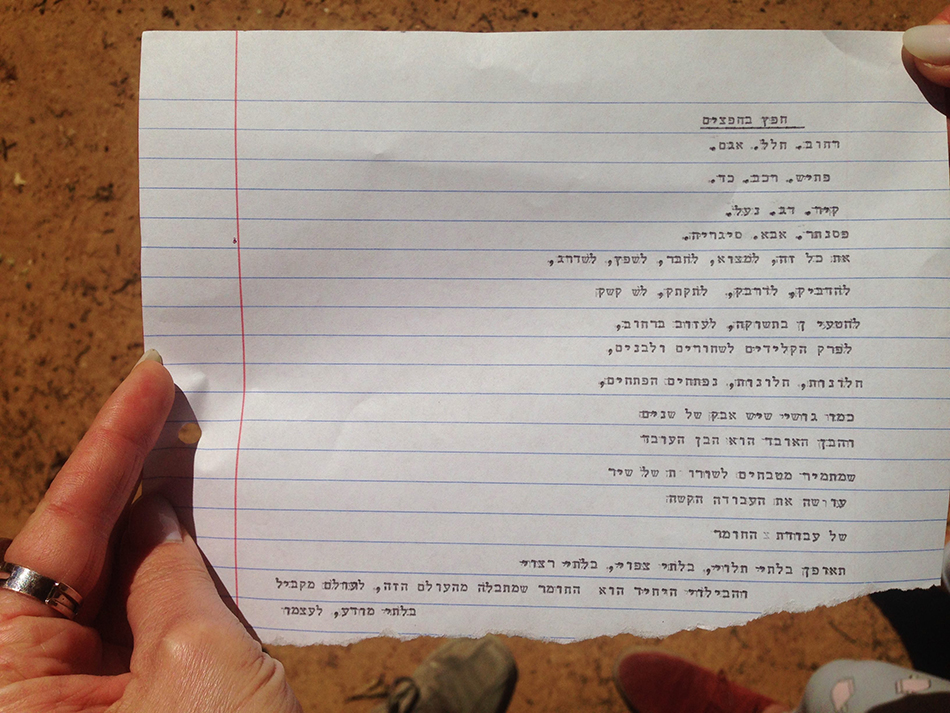 חפץ בחפצים
רחוב. חלל. אגם.
פתיש. רכב. כד.
קיר. דג. נעל.
פסנתר. אבא. סיגריה.
את כל זה, למצוא, לחבר, לשפץ, לשדרג,
להדביק, לדרבק, לתקתק, לש קשק
להטעי ן בתשוקה, לעזוב ברחוב,
לפרק הקלידים לשחורים ולבנים,
חלונות, חלונות, נפתחים הפתחים,
כמו גושי שיש אבק של שנים
והבן האובד הוא הבן העובד
שמתמיר מטבחים לשורו ת של שיר
עושה את העבודה הקשה
של עבודת החומר
תאופן בלתי תלוי, בלתי צפוי, בלתי רצוי
והבילוי היחיד הוא החומר שמתבלה מהעולם הזה, לעולם מקביל
בלתי מודע, לעצמו